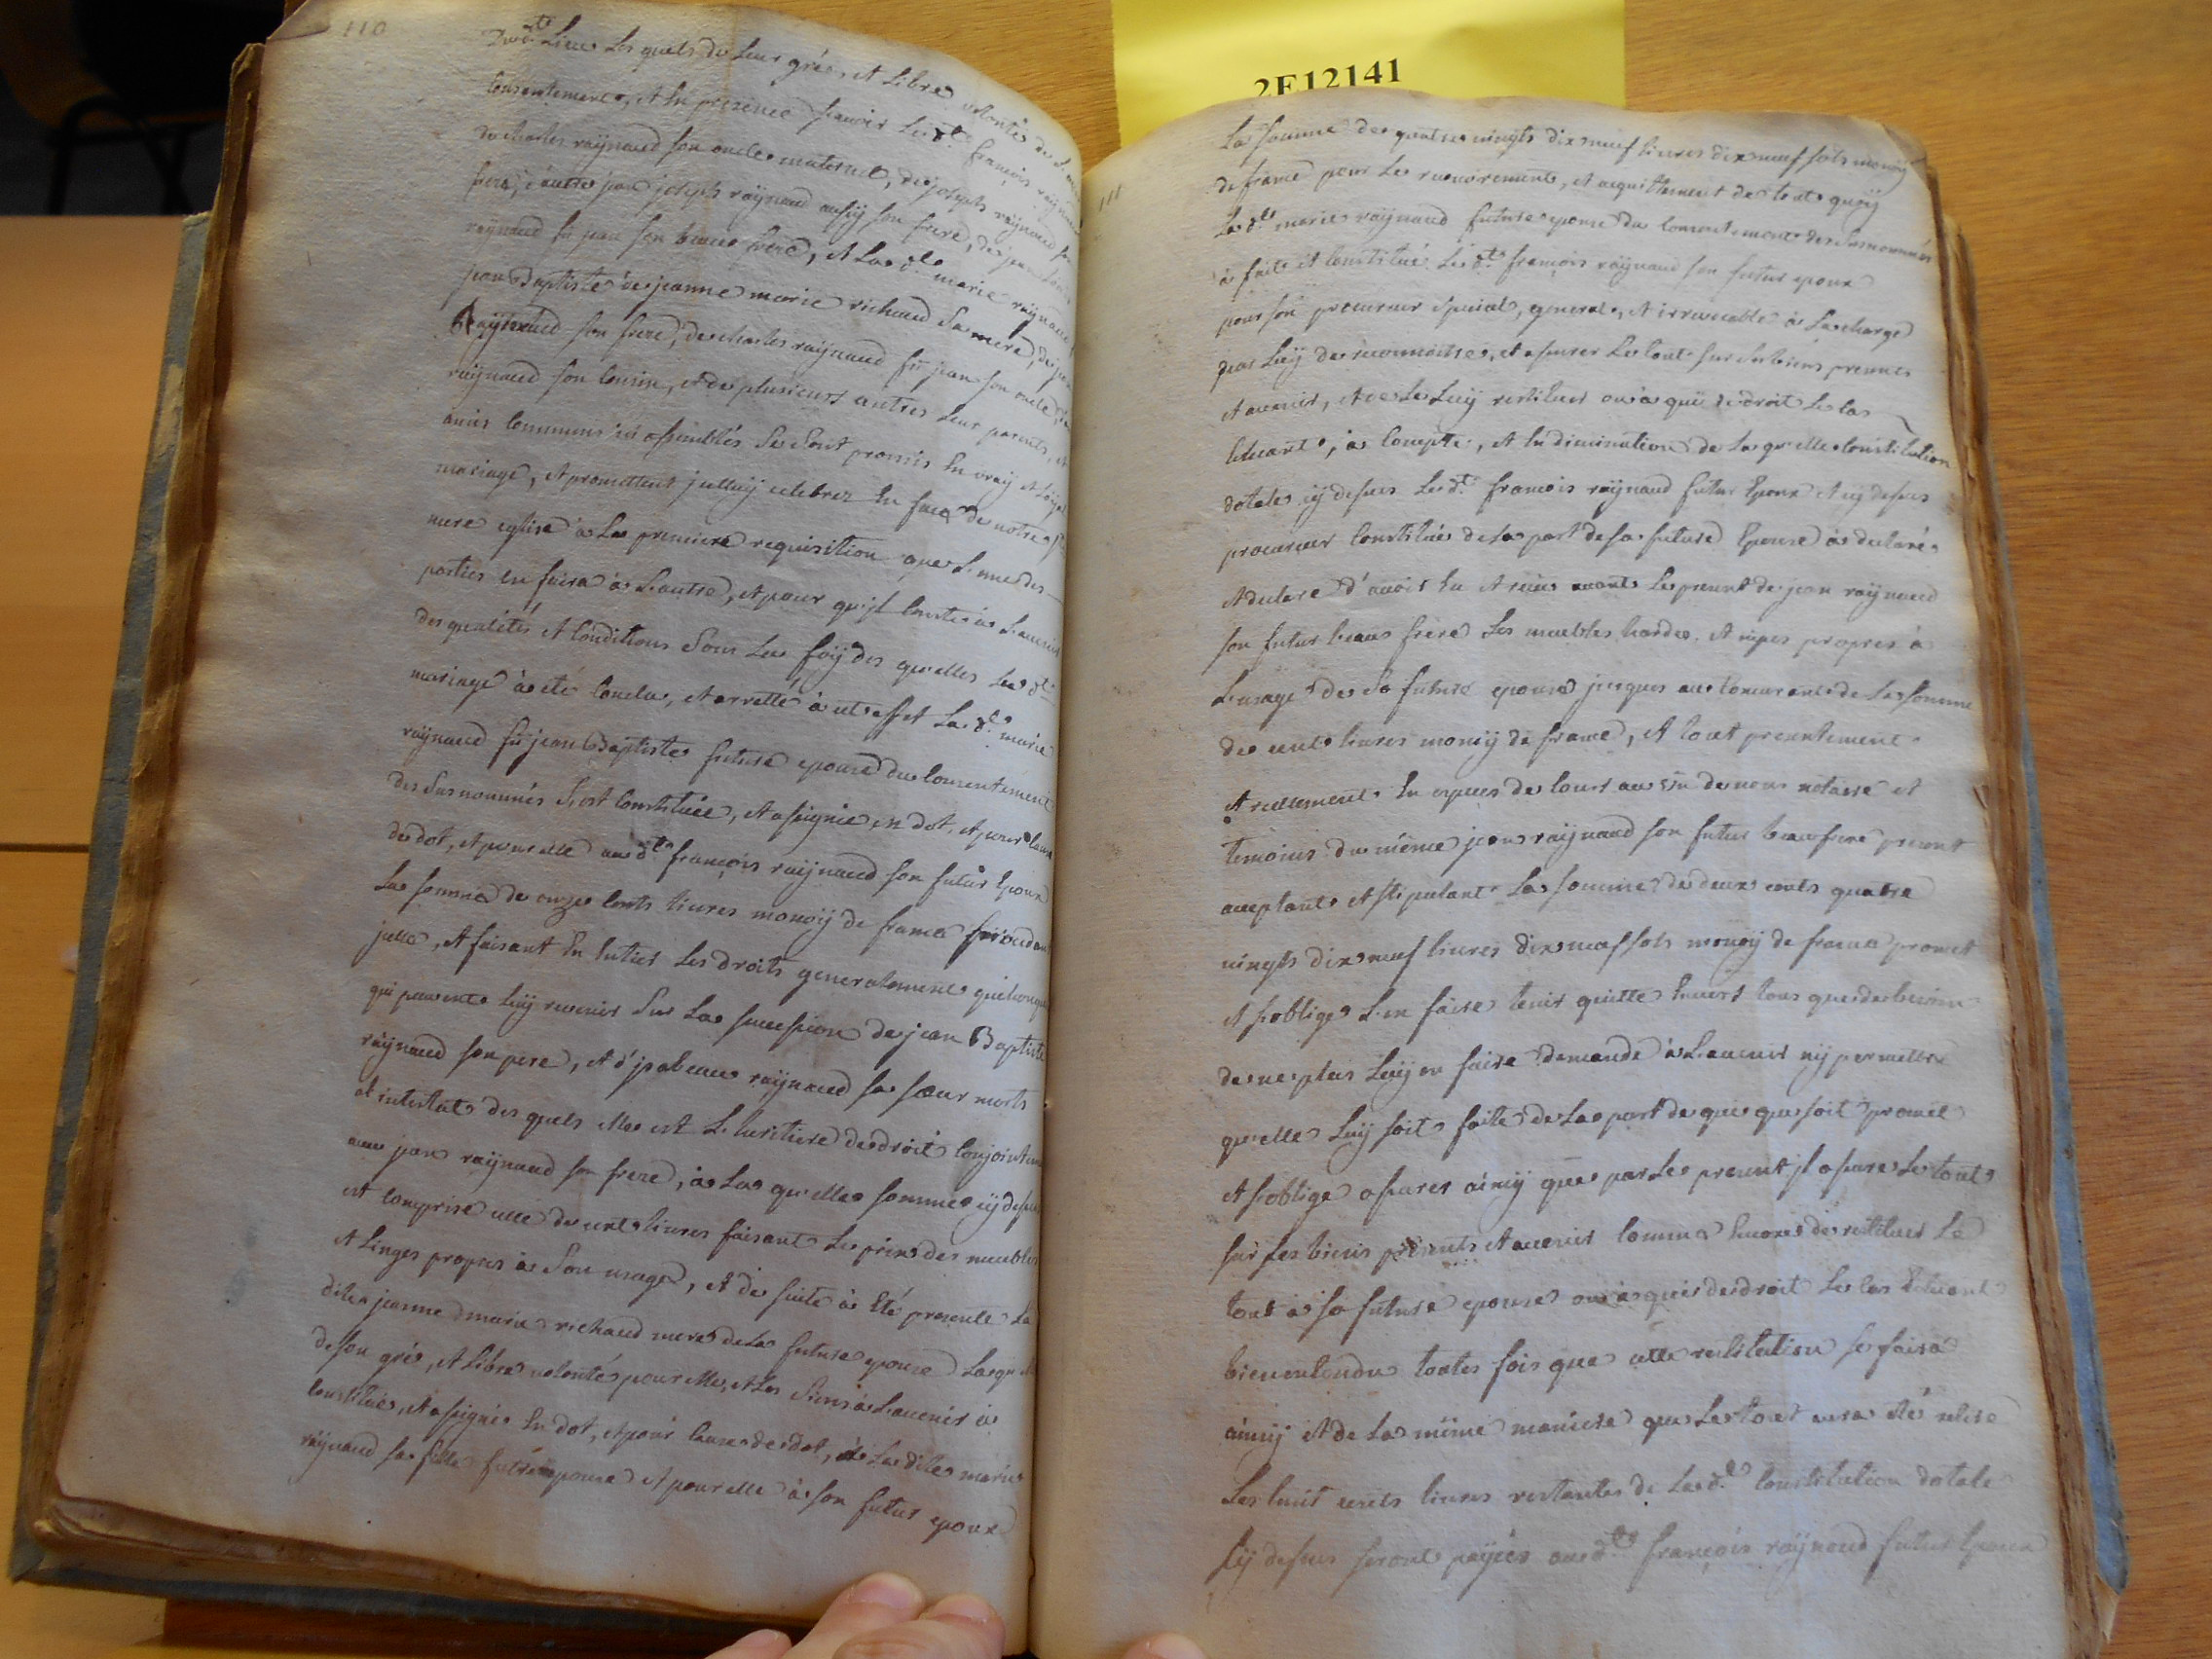 110
Dud.t Lieu Les quels de Leur gré, et Libre volonté du
Consentement, et En presence sçavoir Le d.t françois raÿnaud
de charles raÿnaud son oncle maternel, de joseph raÿnaud son
frere, d'autre jean joseph raÿnaud aussÿ son frere, de jean Louis
raÿnaud fû jean son beau frere, et La d.te marie raÿnaud fû
jean Baptiste de jeanne marie richaud Sa mere, de jean
Raÿnaud son frere, de charles raÿnaud fû jean son oncle,
raÿnaud son Cousin, et de plusieurs autres Leur parents, et
amis Communs icÿ assemblés Se Sont promis En vraÿ et Loÿal
mariage, et promettent jcelluÿ celebrer En face de notre S.te
mere eglise à La premiere requisition que L'une des
parties en faira à L'autre, et pour qu'jl Conste à L'avenir
des qualités et Conditions Sous La foÿ des quelles Le d.t
mariage à eté Conclu, et arretté à cet effet La d.te marie
raÿnaud fû jean Baptiste future epouse du Consentement
des Susnommés S'est Constituée, et assignée en dot, et pour Cause
de dot, et pour elle au d.t françois raÿnaud son futur Epoux
La somme de onze Cents Livres monoÿ de france procedant
jcelle, et faisant En Entier Les droits generalement quelconques
qui peuvent Luÿ revenir Sur La succession de jean Baptiste
raÿnaud son pere, et d'jsabeau raÿnaud sa sœur morts
ab intestat des quels elle est L'heritiere de droit Conjointement
avec jean raÿnaud son frere, à La quelle somme cÿ dessus
est Comprise celle de cent Livres faisant Le prix des meubles
et Linges propres à Son usage, et de suite à Eté presente La
dite jeanne marie richaud mere de La future epouse Laquelle
de son gré, et Libre volonté pour elle, et Les Siens à L'avenir à
Constitué, et assigné En dot, et pour Cause de dot, à La dite marie
raÿnaud sa fille future epouse et pour elle à son futur epoux
2E12141
111
La somme de quatre vingts dix neuf Livres dix neuf sols monoÿ
de france pour Le recouvrement, et acquittement de tout quoÿ
La d.te marie raÿnaud future epouse du Consentement des Susnommés
à fait et Constitué Le d.t françois raÿnaud son futur epoux
pour son procureur Special, general, et irrevocable à La charge
par Luÿ de reconnoitre, et assurer Le tout sur Ses biens presents
et avenir, et de Le Luÿ restituer ou à qui de droit Le Cas
Echeant, à Compte, et En diminution de La quelle Constitution
dotale cÿ dessus Le d.t françois raÿnaud futur Epoux et cÿ dessus
procureur Constitué de La part de sa future Epouse à declaré
et declare d'avoir Eu et reçu avant Le present de jean raÿnaud
son futur beau frere Les meubles hardes, et nipes propres à
L'usage de Sa future epouse jusques au Concurrant de La somme
de cent Livres monoÿ de france, et tout presentement
et reellement En especes de Cours au vû de nous notaire et
temoins du même jean raÿnaud son futur beau frere present
acceptant et stipulant La somme de deux cents quatre
vingts dix neuf Livres dix neuf sols monoÿ de france promet
et s'oblige L'en faire tenir quitte Envers tous que de besoin
de ne plus Luÿ en faire demande à L'avenir nÿ permettre
qu'elle Luÿ soit faite de La part de qui que soit promet
et s'oblige assurer ainsÿ que par Le present jl assure Le tout
sur ses biens presents et avenir Comme Encore de restituer Le
tout à sa future epouse ou à qui de droit Le Cas Echeant
bien entendu toutes fois que cette restitution se faira
ainsÿ et de La même maniere que Le tout aura été retiré
Les huit cents Livres restantes de La d.te Constitution dotale
Cÿ dessus seront payées au d.t françois raÿnaud futur Epoux